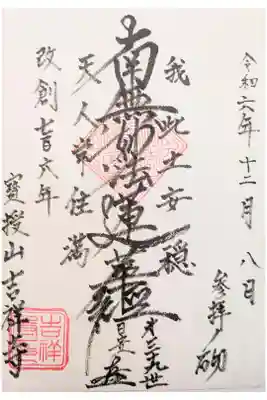 令和六年十二月八日
参拝ノ砌
我此土安穏
南無妙法蓮華經
三九世
日
天人常充満
改創七百六年
寶授山吉祥寺
吉祥